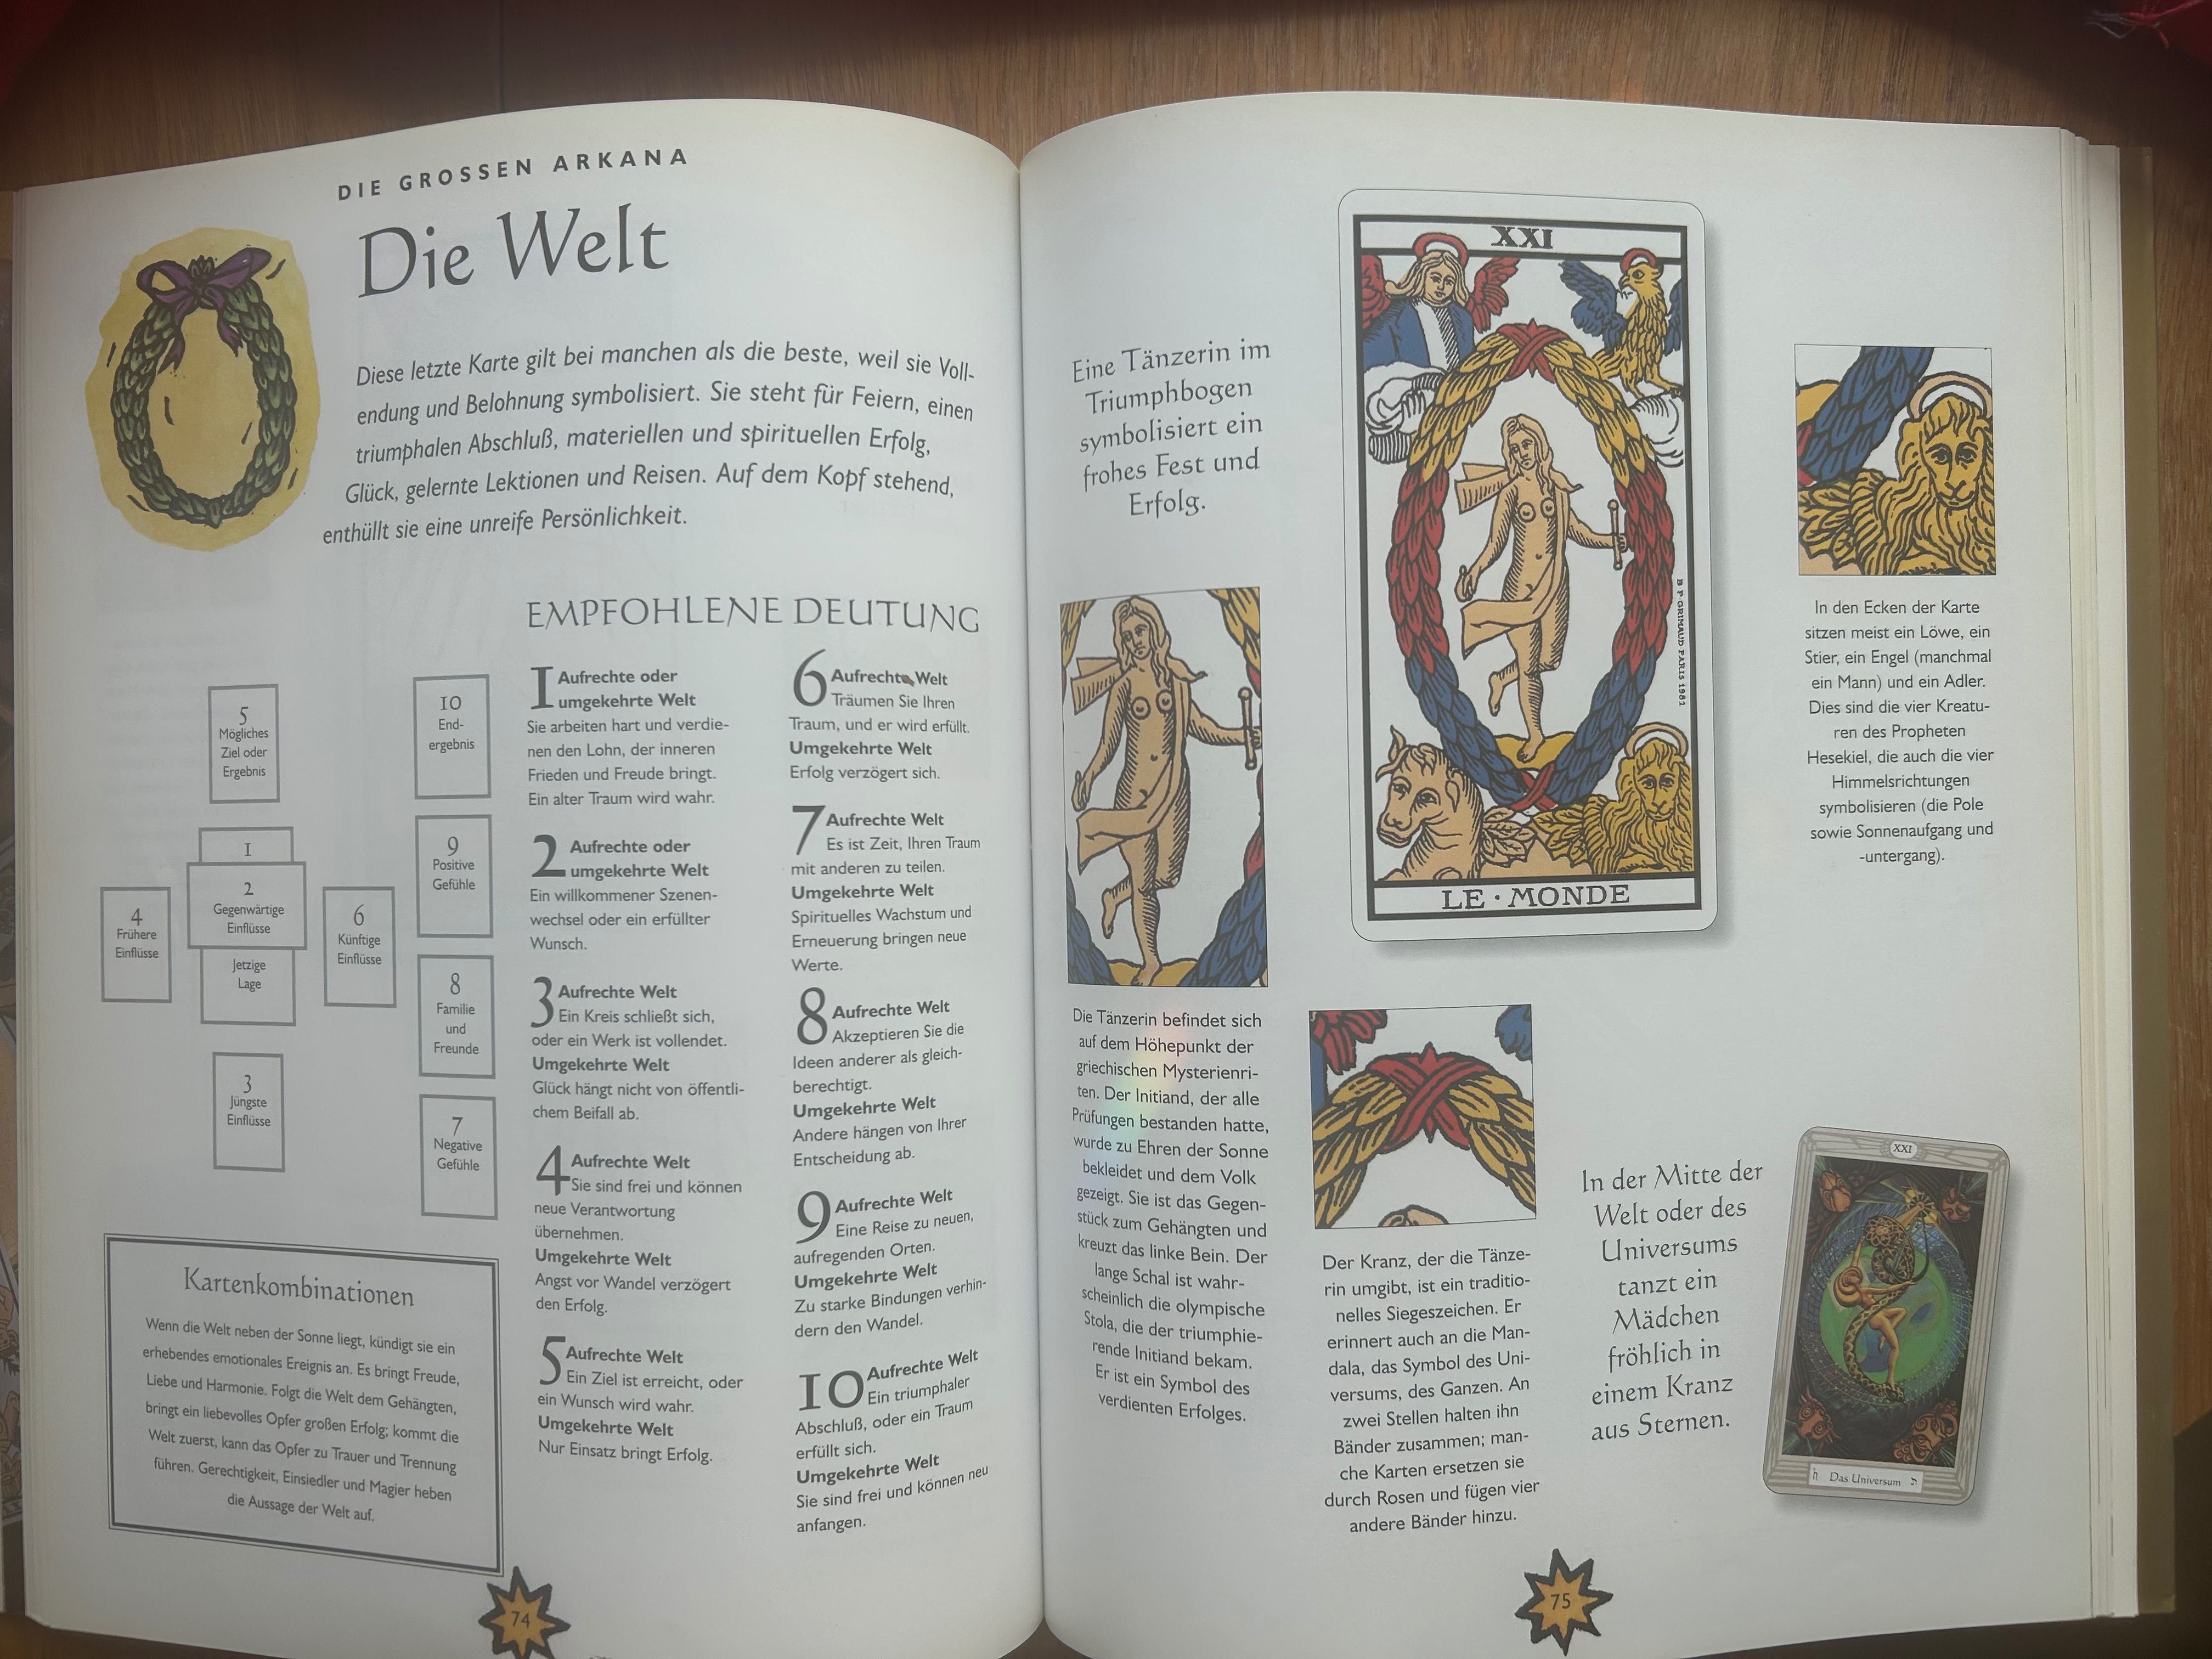 DIE GROSSEN ARKANA
Die Welt
Diese letzte Karte gilt bei manchen als die beste, weil sie Voll-
endung und Belohnung symbolisiert. Sie steht für Feiern, einen
triumphalen Abschluß, materiellen und spirituellen Erfolg,
Glück, gelernte Lektionen und Reisen. Auf dem Kopf stehend,
enthüllt sie eine unreife Persönlichkeit.
5
Mögliches
Ziel oder
Ergebnis
10
End-
ergebnis
1
2
Gegenwärtige
Einflüsse
Jetzige
Lage
4
Frühere
Einflüsse
6
Künftige
Einflüsse
9
Positive
Gefühle
8
Familie
und
Freunde
3
Jüngste
Einflüsse
7
Negative
Gefühle
Kartenkombinationen
Wenn die Welt neben der Sonne liegt, kündigt sie ein
erhebendes emotionales Ereignis an. Es bringt Freude,
Liebe und Harmonie. Folgt die Welt dem Gehängten,
bringt ein liebevolles Opfer großen Erfolg; kommt die
Welt zuerst, kann das Opfer zu Trauer und Trennung
führen. Gerechtigkeit, Einsiedler und Magier heben
die Aussage der Welt auf.
EMPFOHLENE DEUTUNG
1 Aufrechte oder
umgekehrte Welt
Sie arbeiten hart und verdie-
nen den Lohn, der inneren
Frieden und Freude bringt.
Ein alter Traum wird wahr.
2 Aufrechte oder
umgekehrte Welt
Ein willkommener Szenen-
wechsel oder ein erfüllter
Wunsch.
3 Aufrechte Welt
Ein Kreis schließt sich,
oder ein Werk ist vollendet.
Umgekehrte Welt
Glück hängt nicht von öffentli-
chem Beifall ab.
4 Aufrechte Welt
Sie sind frei und können
neue Verantwortung
übernehmen.
Umgekehrte Welt
Angst vor Wandel verzögert
den Erfolg.
5 Aufrechte Welt
Ein Ziel ist erreicht, oder
ein Wunsch wird wahr.
Umgekehrte Welt
Nur Einsatz bringt Erfolg.
6 Aufrechte Welt
Träumen Sie Ihren
Traum, und er wird erfüllt.
Umgekehrte Welt
Erfolg verzögert sich.
7 Aufrechte Welt
Es ist Zeit, Ihren Traum
mit anderen zu teilen.
Umgekehrte Welt
Spirituelles Wachstum und
Erneuerung bringen neue
Werte.
8 Aufrechte Welt
Akzeptieren Sie die
Ideen anderer als gleich-
berechtigt.
Umgekehrte Welt
Andere hängen von Ihrer
Entscheidung ab.
9 Aufrechte Welt
Eine Reise zu neuen,
aufregenden Orten.
Umgekehrte Welt
Zu starke Bindungen verhin-
dern den Wandel.
10 Aufrechte Welt
Ein triumphaler
Abschluß, oder ein Traum
erfüllt sich.
Umgekehrte Welt
Sie sind frei und können neu
anfangen.
74
Eine Tänzerin im
Triumphbogen
symbolisiert ein
frohes Fest und
Erfolg.
XXI
B P GRIMAUD PARIS 1981
LE · MONDE
In den Ecken der Karte
sitzen meist ein Löwe, ein
Stier, ein Engel (manchmal
ein Mann) und ein Adler.
Dies sind die vier Kreatu-
ren des Propheten
Hesekiel, die auch die vier
Himmelsrichtungen
symbolisieren (die Pole
sowie Sonnenaufgang und
-untergang).
Die Tänzerin befindet sich
auf dem Höhepunkt der
griechischen Mysterienri-
ten. Der Initiand, der alle
Prüfungen bestanden hatte,
wurde zu Ehren der Sonne
bekleidet und dem Volk
gezeigt. Sie ist das Gegen-
stück zum Gehängten und
kreuzt das linke Bein. Der
lange Schal ist wahr-
scheinlich die olympische
Stola, die der triumphie-
rende Initiand bekam.
Er ist ein Symbol des
verdienten Erfolges.
Der Kranz, der die Tänze-
rin umgibt, ist ein traditio-
nelles Siegeszeichen. Er
erinnert auch an die Man-
dala, das Symbol des Uni-
versums, des Ganzen. An
zwei Stellen halten ihn
Bänder zusammen; man-
che Karten ersetzen sie
durch Rosen und fügen vier
andere Bänder hinzu.
In der Mitte der
Welt oder des
Universums
tanzt ein
Mädchen
fröhlich in
einem Kranz
aus Sternen.
XXI
Das Universum
75